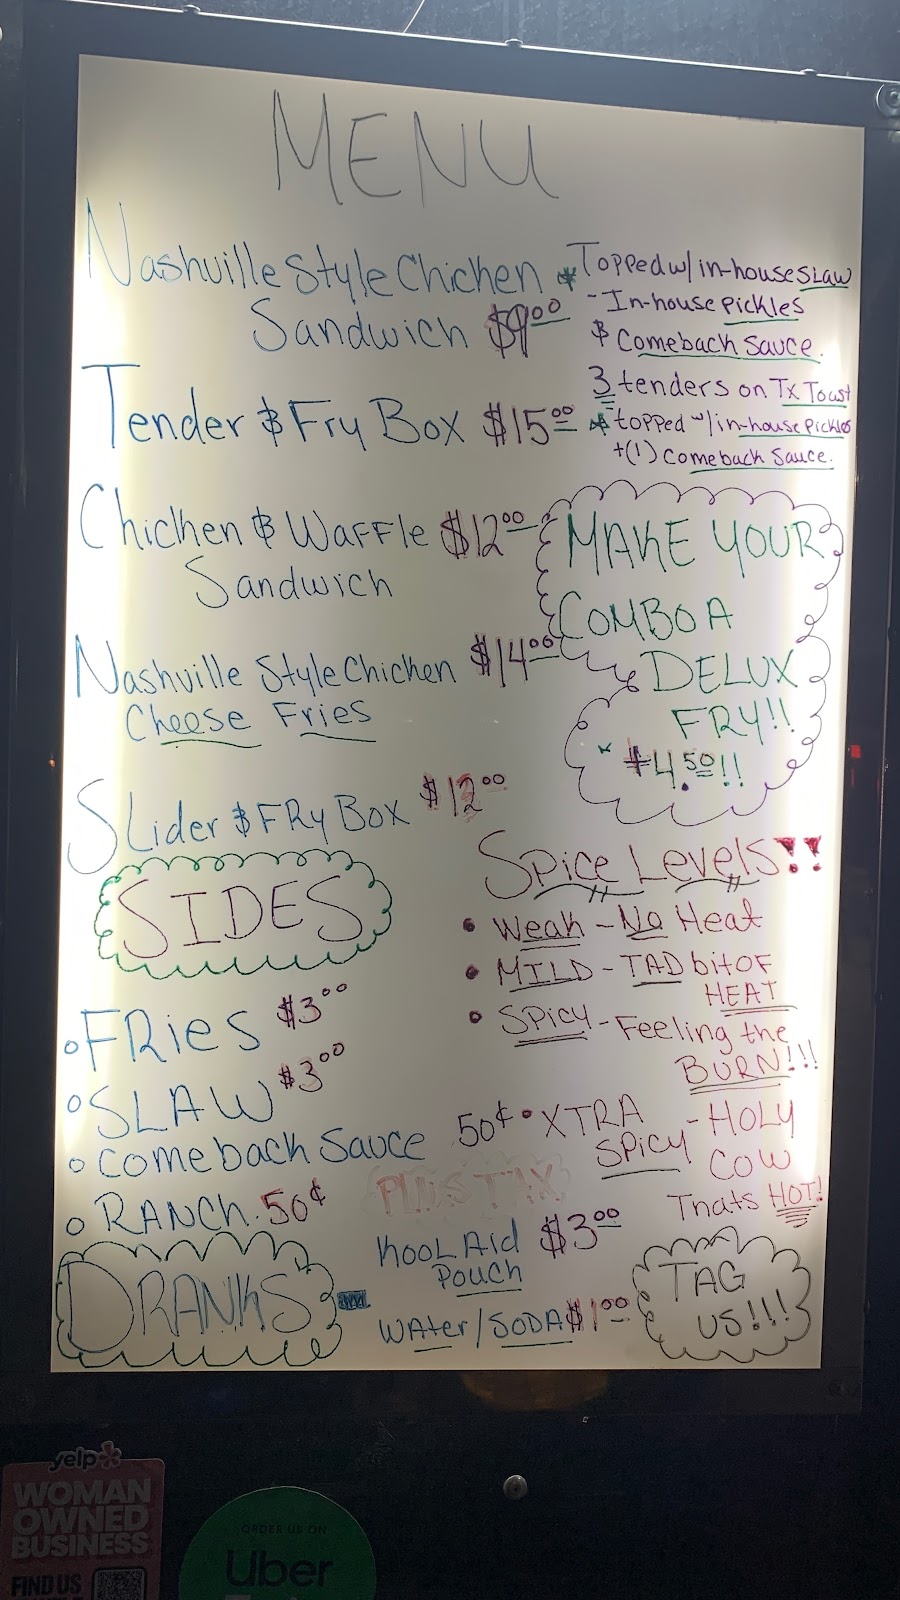 MENU
Nashville Style Chicken
Sandwich $9.00
* Topped w/ in-house SLAW
- In-house Pickles
& Comeback Sauce.
Tender & Fry Box $15.00
3 tenders on Tx Toast
* - topped w/ in-house Pickles
+(1) Comeback Sauce.
Chicken & Waffle $12.00
Sandwich
MAKE YOUR
COMBO A
DELUX
FRY!!
* +4.50!!
Nashville Style Chicken $14.00
Cheese Fries
Slider & FRy Box $12.00
SIDES
• FRies $3.00
• SLAW $3.00
• Comeback Sauce 50¢
• RANCH. 50¢
Spice Levels!!
• Weak - No Heat
• MILD - TAD bit OF
HEAT
• SPICY - Feeling the
BURN!!!
• XTRA
SPICY - HOLY
COW
Thats HOT!
PLUS TAX
DRANKS
KOOL Aid $3.00
Pouch
WAter/SODA $1.00
TAG
US!!!
yelp
WOMAN
OWNED
BUSINESS
FIND US
ORDER US ON
Uber